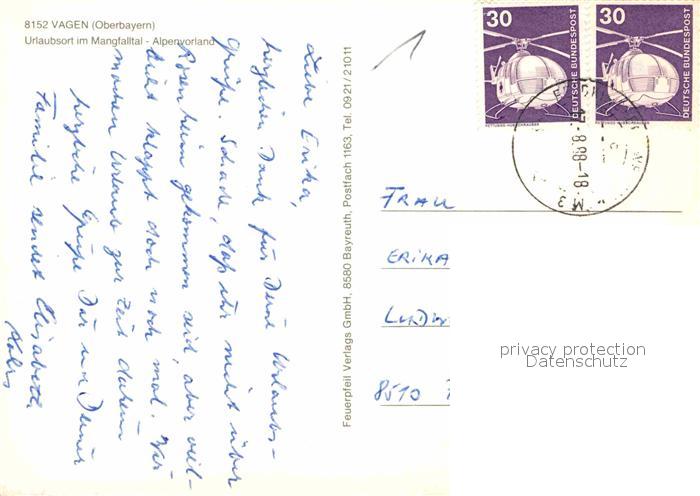 8152 VAGEN (Oberbayern)
Urlaubsort im Mangfalltal - Alpenvorland
Liebe Erika,
herzlichen Dank für Deine Urlaubs-
grüße. Schade, daß ihr nicht über
Rosenheim gekommen seid, aber viel-
leicht klappt doch noch mal. Wir
machen Urlaub zur Zeit daheim
herzliche Grüße Dir und Deiner
Familie sendet Elisabeth
Feuerpfeil Verlags GmbH, 8580 Bayreuth, Postfach 1163, Tel. 0921/21011
30
DEUTSCHE BUNDESPOST
30
DEUTSCHE BUNDESPOST
FRAU
ERIKA
8510
privacy protection
Datenschutz